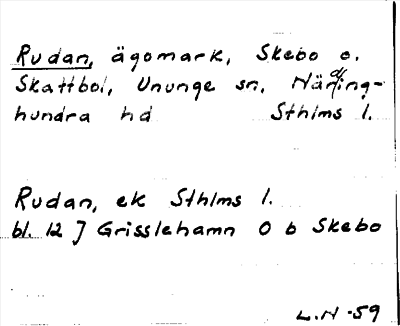 Rudan, ägomark, Skebo o.
Skattbol, Ununge sn, Närding-
hundra hd Sthlms l.
Rudan, ek Sthlms l.
bl. 12 J Grisslehamn O b Skebo
L.H -59